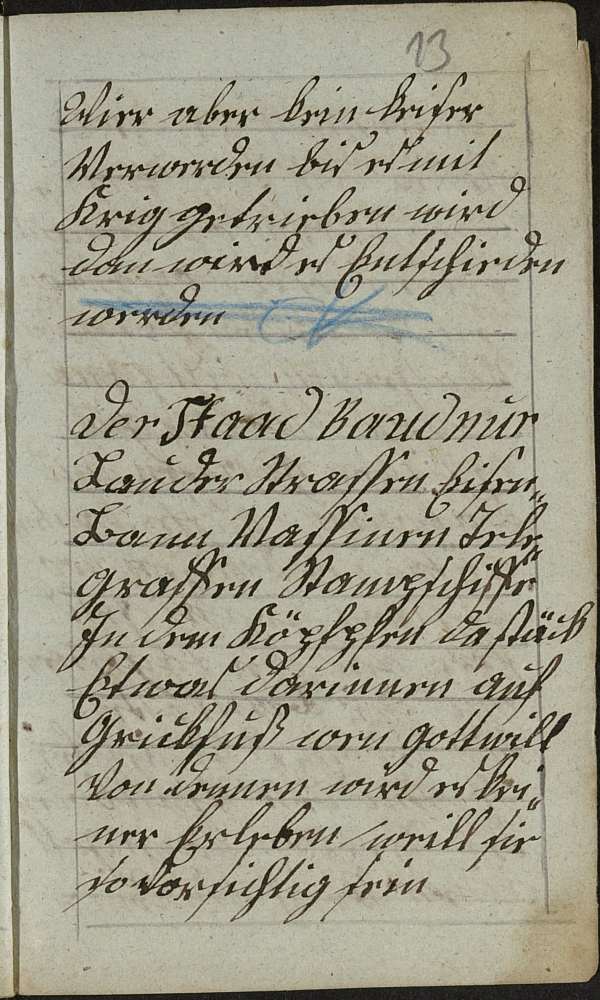 13
Wier aber kein keiser
Verwerden bis es mit
Krig getrieben wird
dan wird es Entschieden
werden
der Staad Baud nur
Lauder Strassen Eisen„
Bann Massinen Tele„
graffen Stampfschiffe
In dem Köpfpfen da stäck
Etwas darinnen auf
Grickfuß wen gott will
von dennen wird es kei„
ner Erleben weill sie
so vorsichtig sein